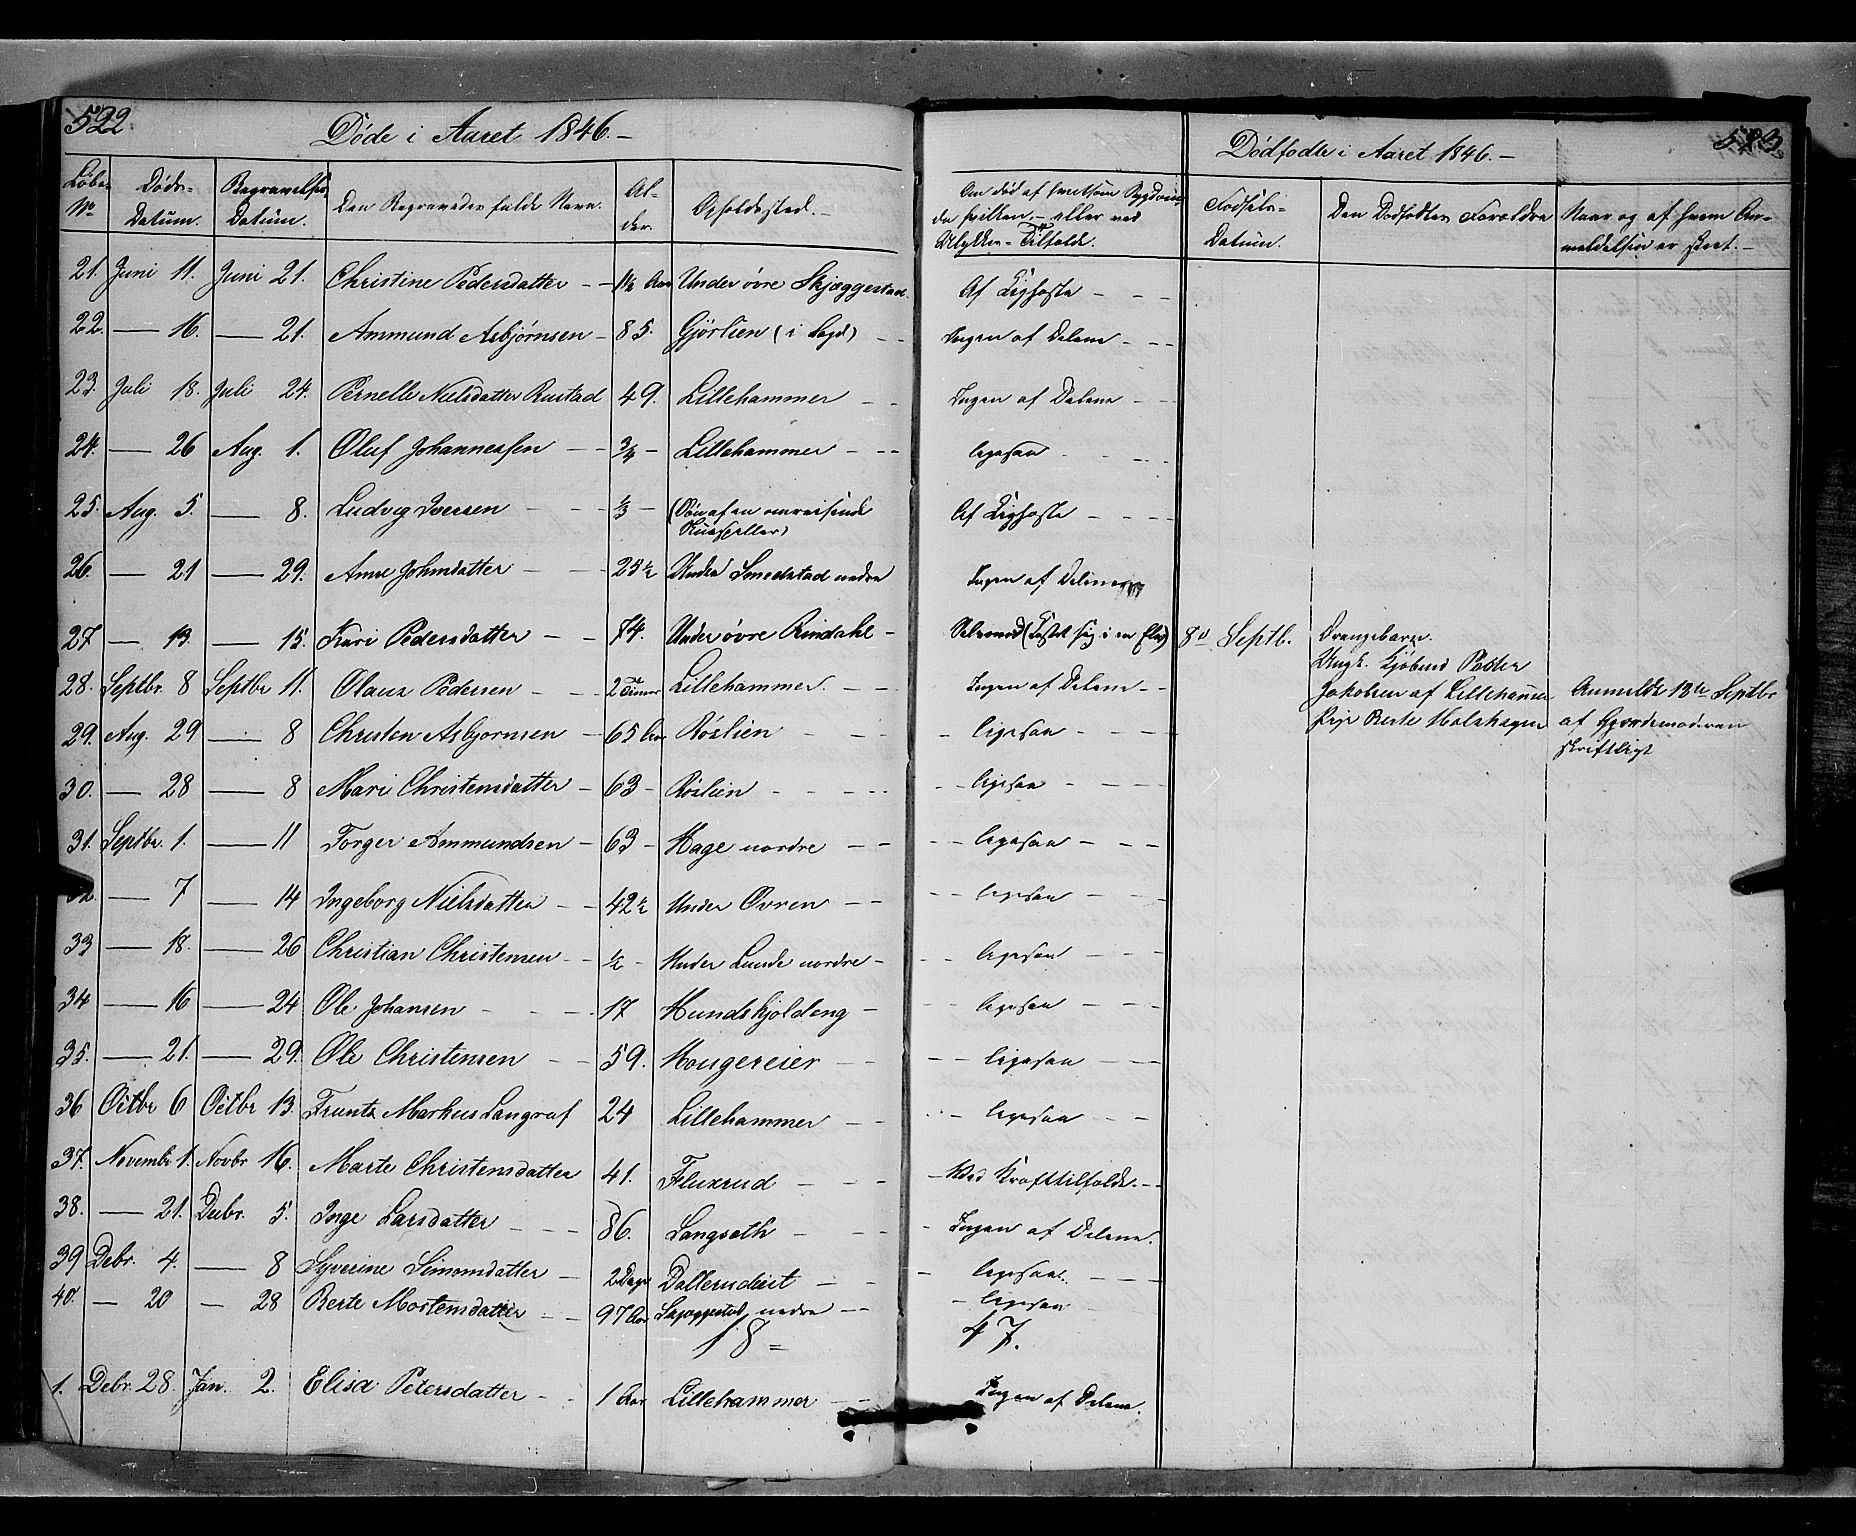 522
Døde i Aaret 1846.
Løbe No | Døds-Datum. | Begravelses Datum. | Den Begravedes fulde Navn. | Alder. | Opholdssted. | Om død af hvilken Sygdom
21. | Juni 11. | Juni 21. | Christine Pedersdatter | 1½ Aar | Under øvre Skjæggestad | Af Kighoste
22. | — 16. | — 21. | Ammund Asbjørnsen | 85. | Gjørlien (i Lægd) | Ingen af Delene
23. | Juli 18. | Juli 24. | Pernelle Nielsdatter Rustad | 49. | Lillehammer | Ingen af Delene
24. | — 26 | Aug. 1. | Oluf Johannessen | ¾ | Lillehammer | ligesaa
25. | Aug. 5. | — 8. | Ludvig Iversen | ⅓ | (Søn af en omreisende Skuespiller) | Af Kighoste
26. | — 21 | — 29. | Anne Johnsdatter | 25½ | Under Smedstad nedre | Ingen af Delene
27 | — 13. | — 15. | Kari Pedersdatter | 74. | Under øvre Rindahl | Selvmord (Kastet sig i en Elv)
28. | Septbr. 8 | Septbr 11. | Olaus Pedersen | 2 Timer | Lillehammer. | Ingen af Delene
29. | Aug. 29 | — 8 | Christen Asbjornsen | 65 Aar | Røslien | ligesaa
30. | — 28 | — 8 | Mari Christensdatter | 63 | Røslien | ligesaa
31. | Septbr. 1. | — 11 | Torger Ammundsen | 63 | Hage nordre | ligesaa
32 | — 7 | — 14 | Ingeborg Nielsdatter | 42½ | Under Ovren | ligesaa
33 | — 18. | — 26 | Christian Christensen | ½ | Under Lunde nordre | ligesaa
34 | — 16 | — 24 | Ole Johansen | 17 | Hundskjoldeng | ligesaa
35. | — 21. | — 29. | Ole Christensen | 59. | Hougereier | ligesaa
36 | Octbr 6 | Octbr 13. | Frantz Markus Langraf | 24 | Lillehammer | ligesaa
37. | Novembr 1. | Novbr 16. | Marte Christensdatter | 41. | Fluxrud | Ved Krafttilfælde.
38. | — 21. | Debr. 5. | Inge Larsdatter | 86. | Langseth | Ingen af Delene.
39 | Debr. 4. | — 8 | Syverine Simonsdatter | 2 Dage | | ligesaa.
40. | — 20 | — 28 | Berte Mortensdatter | 97 Aar | Skjæggestad nedre | ligesaa
18 = | 47.
1. | Debr. 28. | Jan. 2. | Elisa Petersdatter | 1 Aar | Lillehammer | Ingen af Delene.
523
Dødfødte i Aaret 1846.
Fødsels-Datum. | Den Dødfødtes Forældre | Naar og af hvem Anmeldelsen er skeet.
8de Septb. | Drengebarn.
Ungk. Peder
Jakobsen af Lillehammer | Anmeldt 12te Septbr
Pige Berte Holshagen | af Gjordemoderen
skriftligt